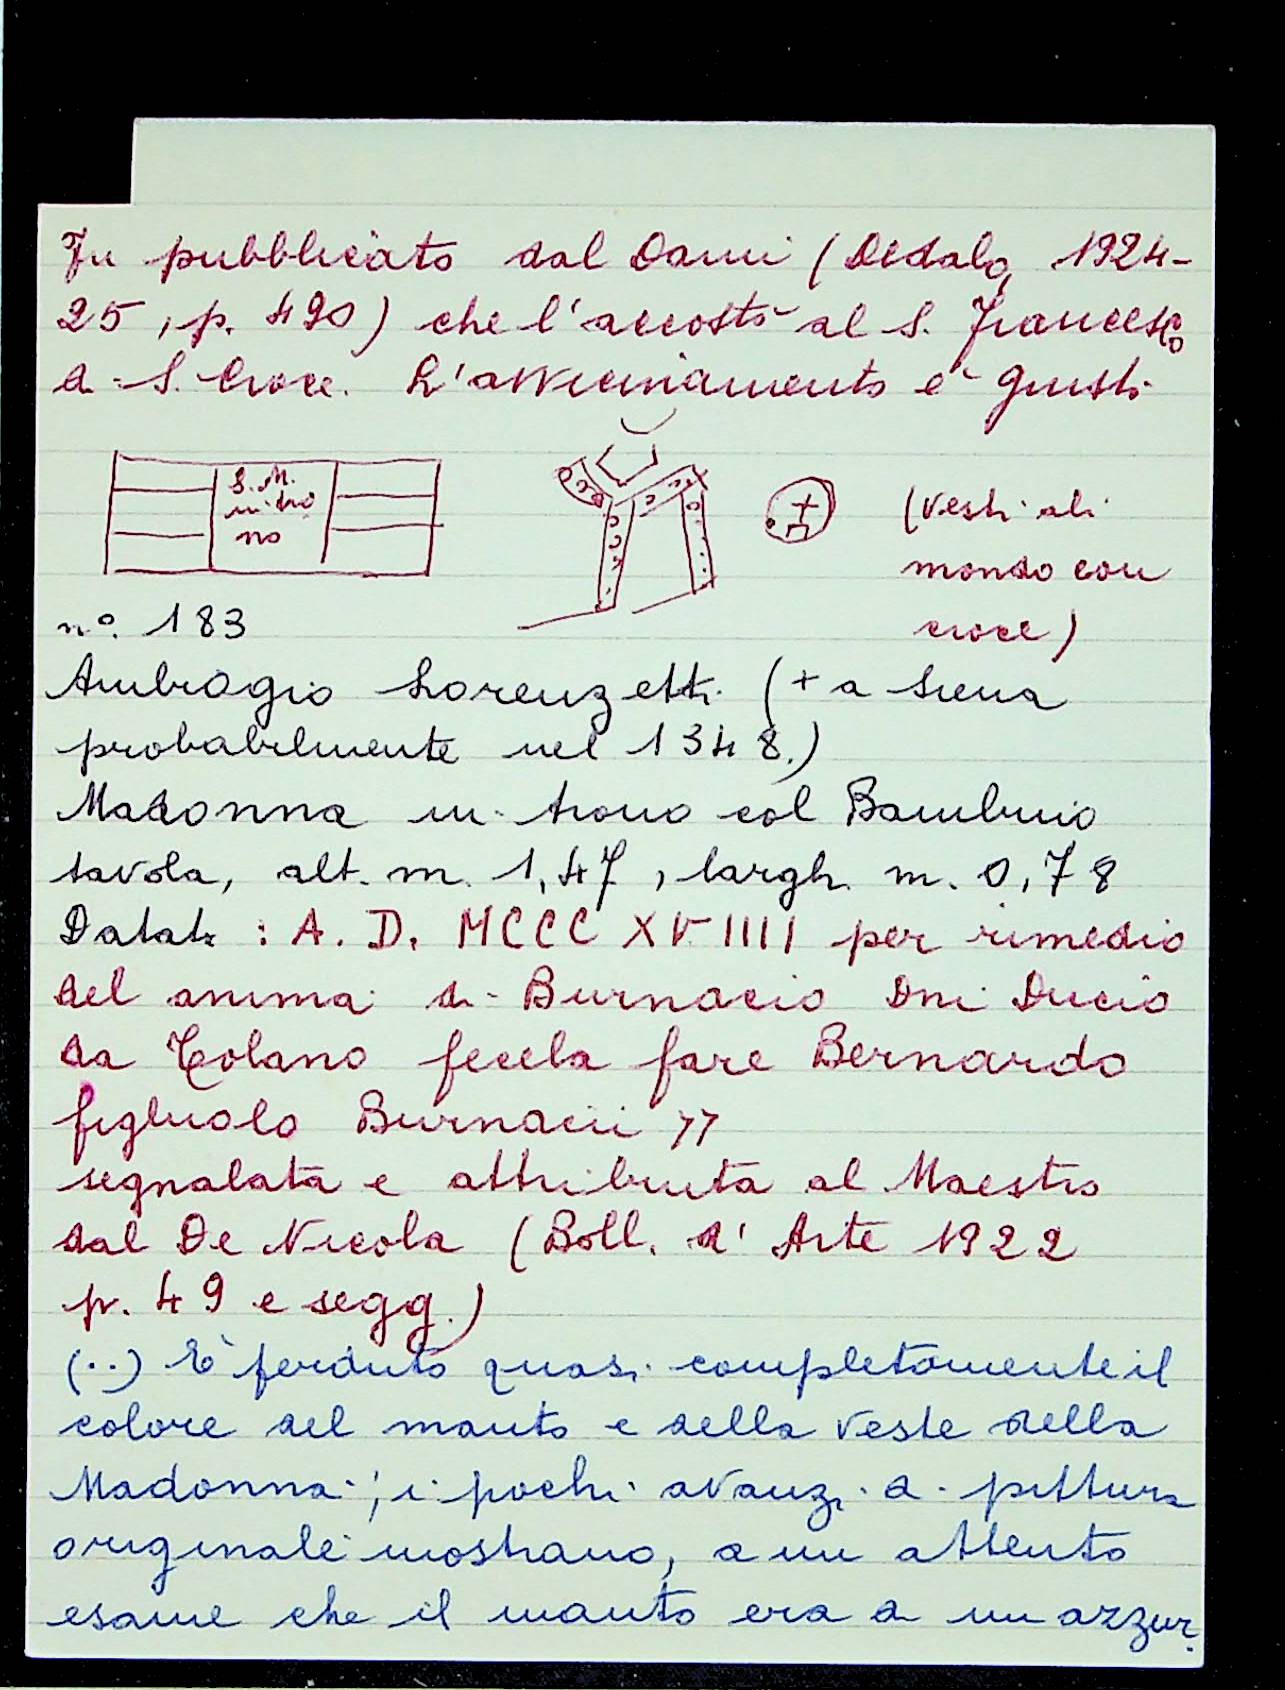 Fu pubblicato dal Dami (Dedalo, 1924-
25, p. 490) che l'accostò al S. Francesco
di S. Croce. L'avvicinamento è giusto
S.M.
in tro
no
(vesti ali
mondo con
croce)
n°. 183
Ambrogio Lorenzetti (+ a Siena
probabilmente nel 1348.)
Madonna in trono col Bambino
tavola, alt. m. 1,47, largh. m. 0,78
Datata : A. D. MCCC XVIIII per rimedio
del anima di Burnacio Dni Ducio
da Tolano fecela fare Bernardo
figliuolo Burnacii »
segnalata e attribuita al Maestro
dal De Nicola (Boll. d'Arte 1922
p. 49 e segg.)
(..) È perduto quasi completamente il
colore del manto e della veste della
Madonna; i pochi avanzi di pittura
originale mostrano, a un attento
esame che il manto era di un azzur.